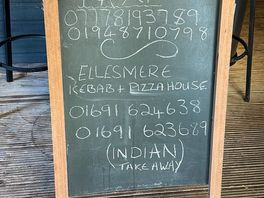 07778193789
01948710798
ELLESMERE
KEBAB + PIZZA HOUSE
01691 624638
01691 623689
(INDIAN
TAKEAWAY)